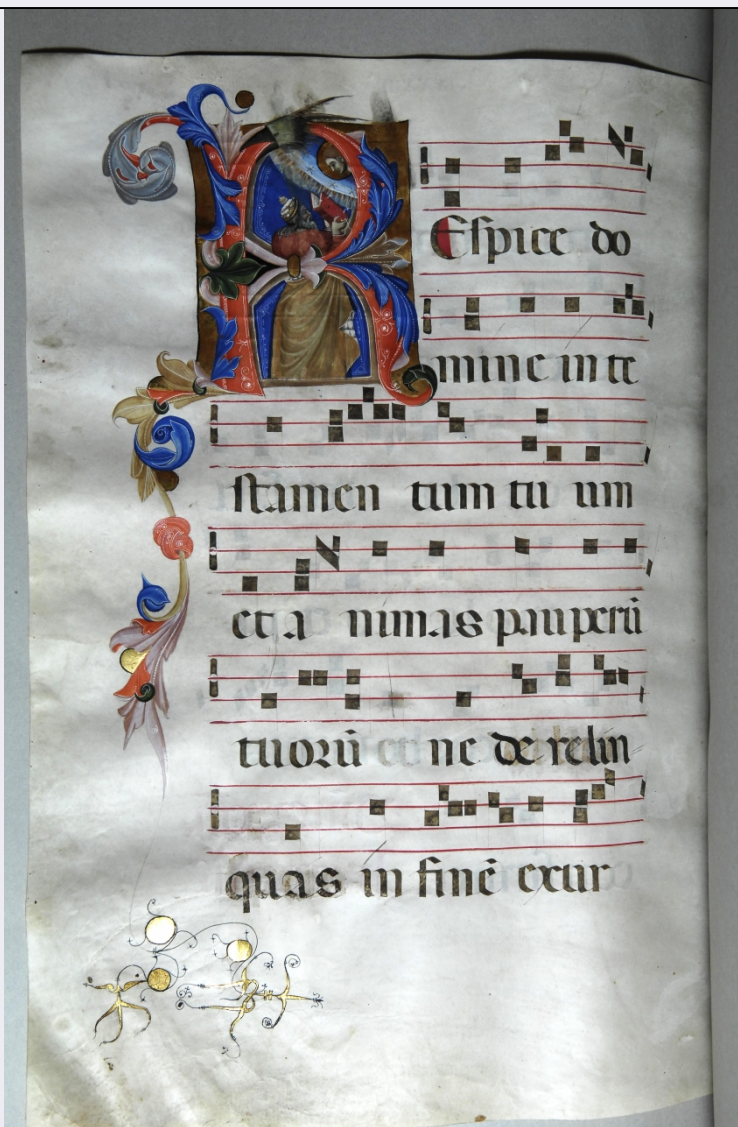 REſpice do
mine in te
ſtamen tum tu um
et a nimas pauperū
tuorū et ne de relin
quas in finē exur